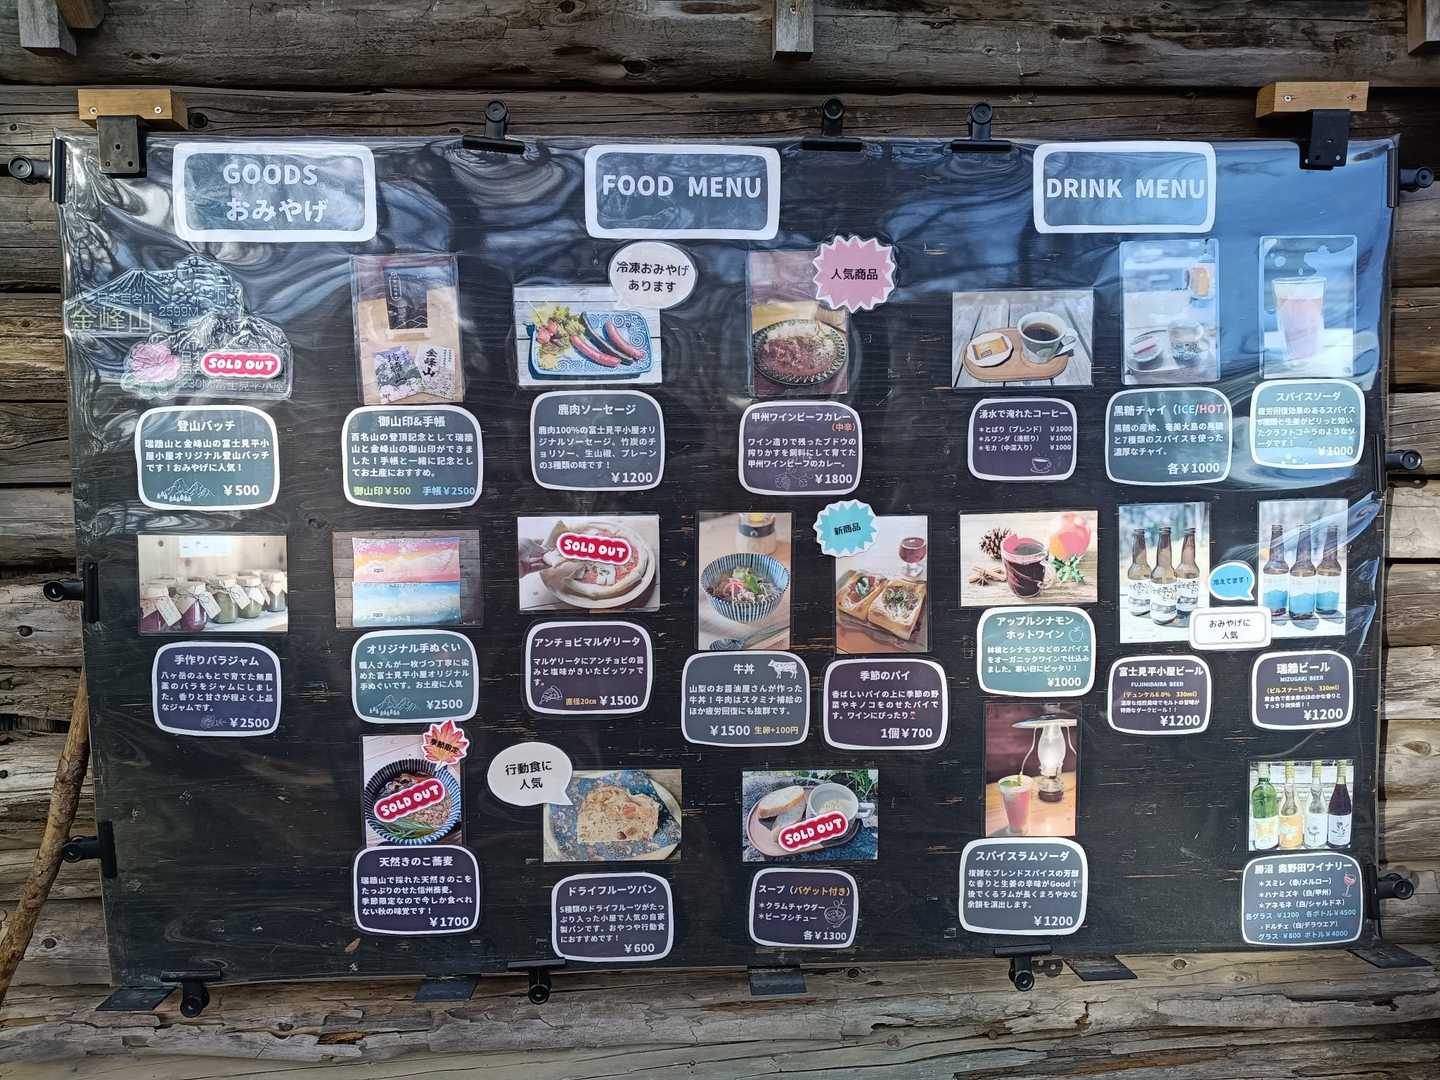 GOODS
おみやげ
FOOD MENU
DRINK MENU
金峰山
2599M
SOLD OUT
登山バッチ
瑞牆山と金峰山の富士見平小
屋小屋オリジナル登山バッチ
です！おみやげに人気！
￥500
御山印&手帳
百名山の登頂記念として瑞牆
山と金峰山の御山印ができま
した！手帳と一緒に記念とし
てお土産におすすめ。
御山印￥500 手帳￥2500
手作りバラジャム
八ヶ岳のふもとで育てた無農
薬のバラをジャムにしまし
た。香りと甘さが程よく上品
なジャムです。
￥2500
オリジナル手ぬぐい
職人さんが一枚づつ丁寧に染
めた富士見平小屋オリジナル
手ぬぐいです。お土産に人気
￥2500
冷凍おみやげ
あります
鹿肉ソーセージ
鹿肉100%の富士見平小屋オリ
ジナルソーセージ。竹炭のチ
ョリソー、生山椒、プレーン
の3種類の味です！
￥1200
人気商品
甲州ワインビーフカレー
（中辛）
ワイン造りで残ったブドウの
搾りかすを飼料にして育てた
甲州ワインビーフのカレー。
￥1800
SOLD OUT
アンチョビマルゲリータ
マルゲリータにアンチョビの旨
みと塩味がきいたピッツァで
す。
直径20㎝ ￥1500
牛丼
山梨のお醤油屋さんが作った
牛丼！牛肉はスタミナ補給の
ほか疲労回復にも抜群です。
￥1500 生卵+100円
新商品
季節のパイ
香ばしいパイの上に季節の野
菜やキノコをのせたパイで
す。ワインにぴったり
1個￥700
季節限定
SOLD OUT
天然きのこ蕎麦
瑞牆山で採れた天然きのこを
たっぷりのせた信州蕎麦。
季節限定なので今しか食べれ
ない秋の味覚です！
￥1700
行動食に
人気
ドライフルーツパン
5種類のドライフルーツがたっ
ぷり入った小屋で人気の自家
製パンです。おやつや行動食
におすすめです！
￥600
SOLD OUT
スープ（バゲット付き）
＊クラムチャウダー
＊ビーフシチュー
各￥1300
湧水で淹れたコーヒー
＊とちば（ブレンド） ￥1000
＊ルワンダ（浅煎り） ￥1000
＊モカ（中深入り） ￥1000
黒糖チャイ（ICE/HOT）
黒糖の産地、奄美大島の黒糖
と7種類のスパイスを使った
濃厚なチャイ。
各￥1000
スパイスソーダ
疲労回復効果のあるスパイス
や黒糖と生姜がピリッと効い
たクラフトコーラのようなソ
ーダです！
￥1000
アップルシナモン
ホットワイン
林檎とシナモンなどのスパイス
をオーガニックワインで仕込み
ました。寒い日にピッタリ！
￥1000
冷えてます！
おみやげに
人気
富士見平小屋ビール
FUJIMIDAIRA BEER
（デュンケル6.0% 330ml）
濃厚な焙煎風味でモルトの旨味が
特徴なダークビール！！
￥1200
瑞牆ビール
MIZUGAKI BEER
（ピルスナー5.5% 330ml）
すっきり爽快感！！
￥1200
スパイスラムソーダ
複雑なブレンドスパイスの芳醇
な香りと生姜の辛味がGood！
後でくるラムが長くまろやかな
余韻を演出します。
￥1200
勝沼 奥野田ワイナリー
＊スミレ（赤/メルロー）
＊ハナミズキ（白/甲州）
＊アネモネ（白/シャルドネ）
各グラス ￥1200 各ボトル￥4500
＊ドルチェ（白/デラウエア）
グラス ￥800 ボトル￥4000